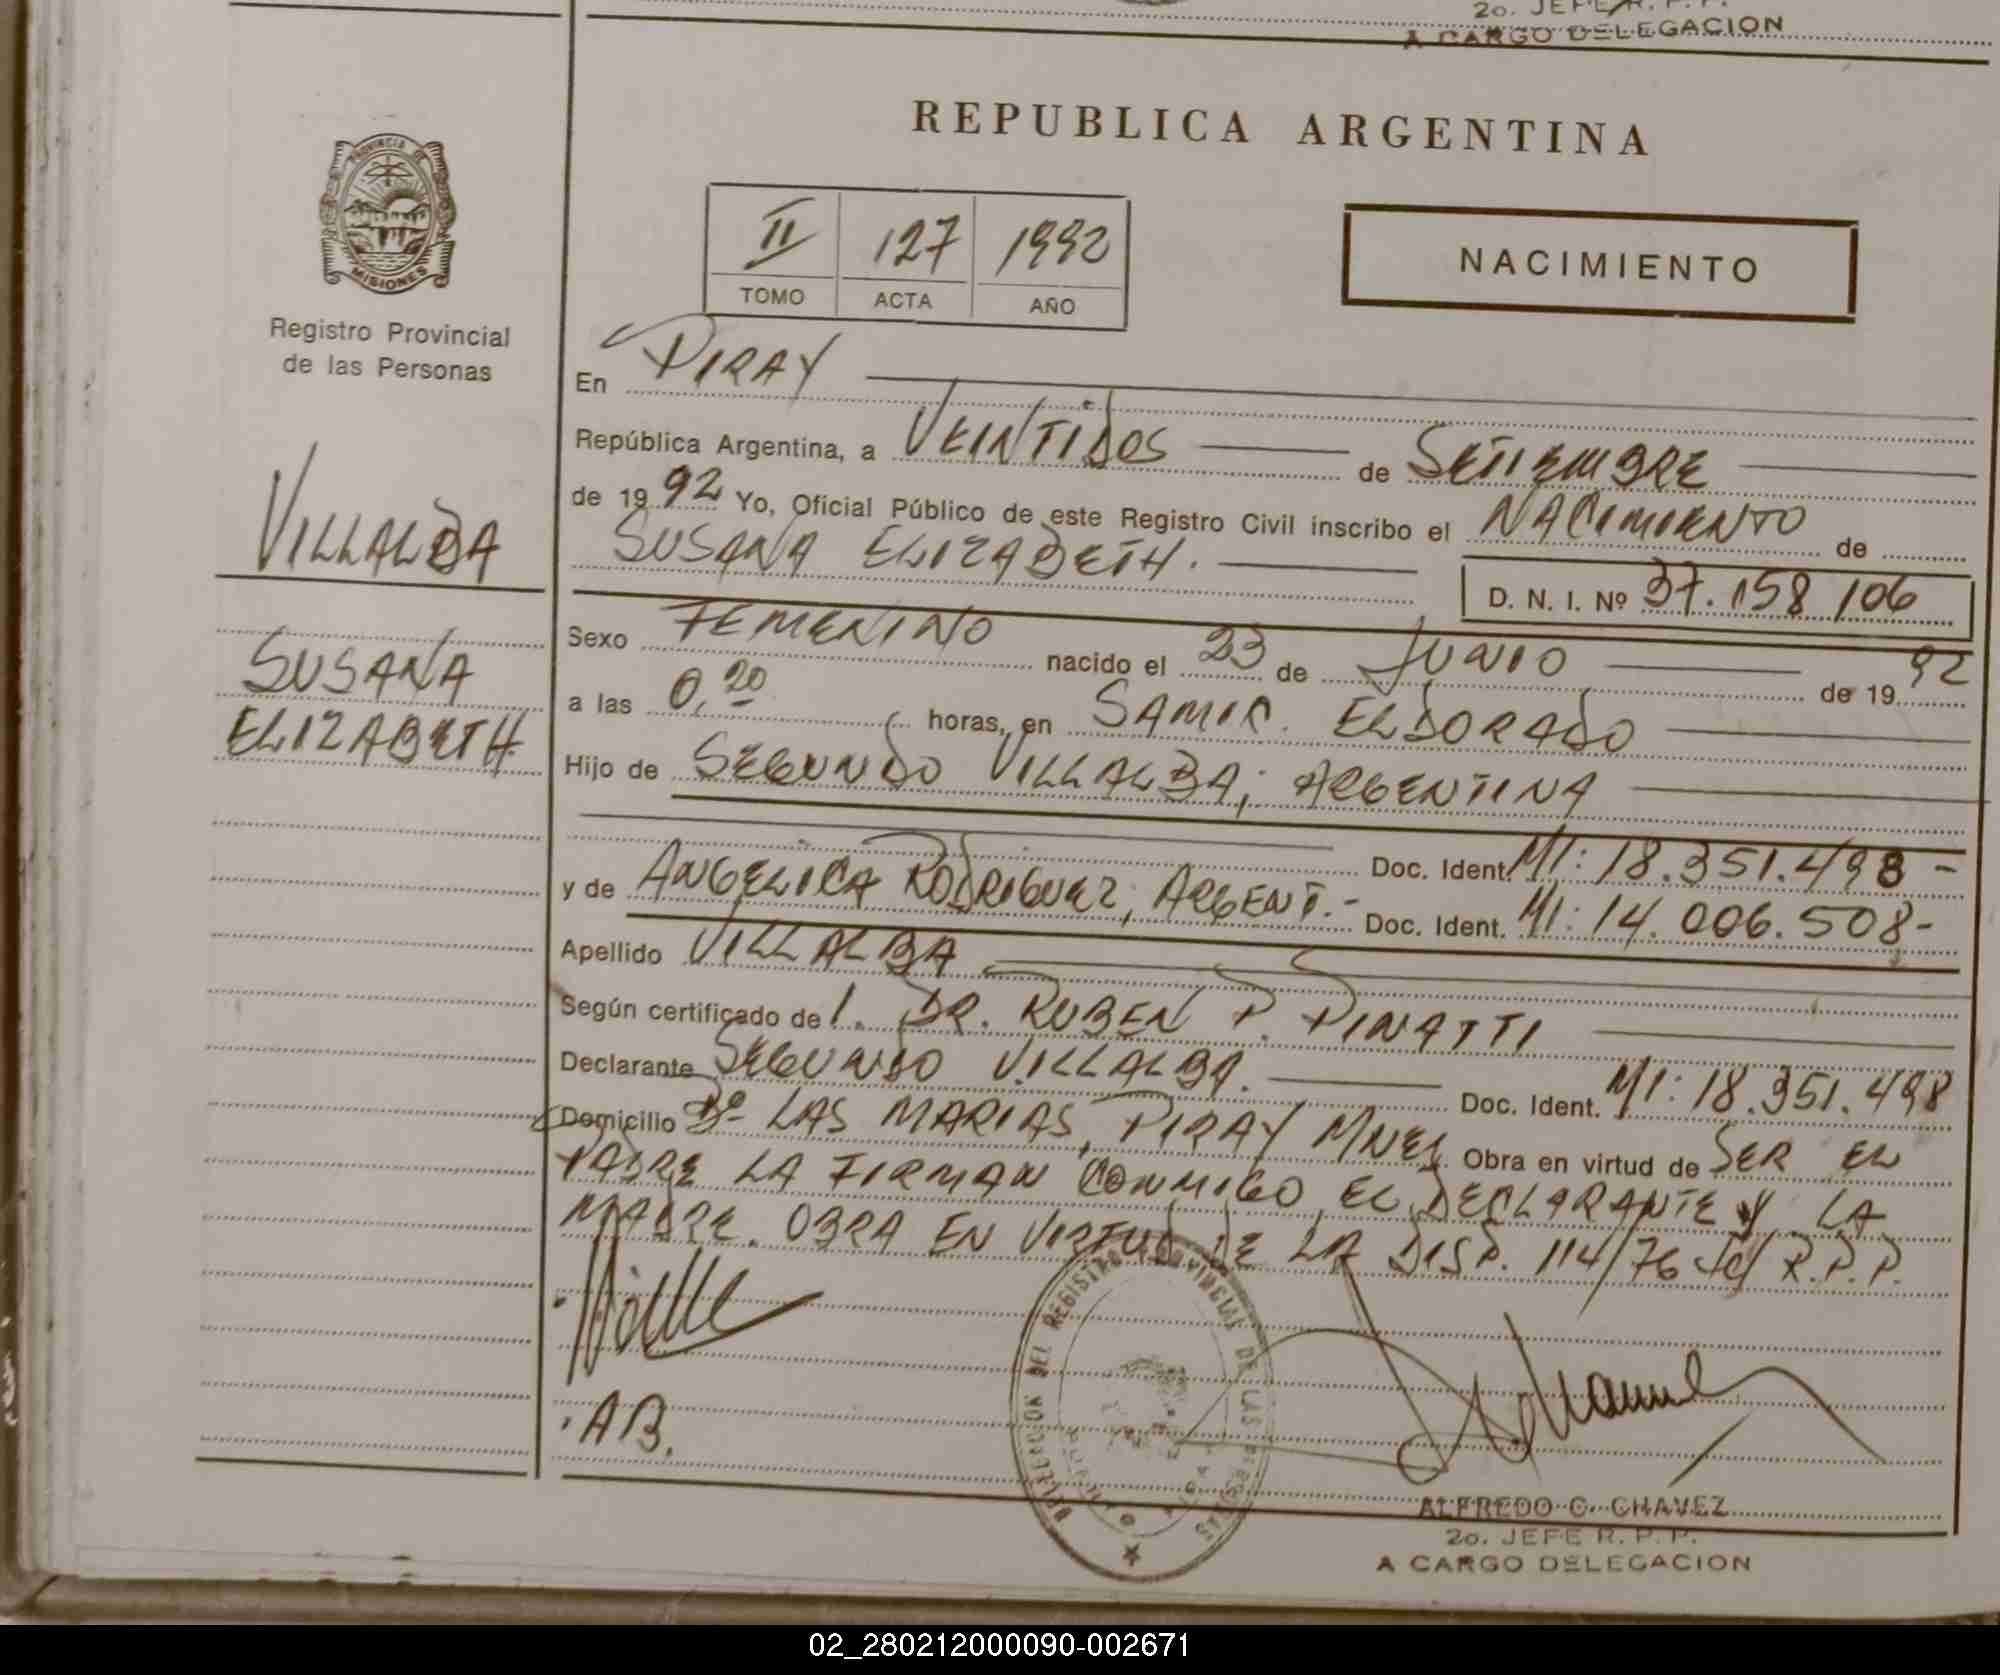 2o. JEFE R. P. P.
A CARGO DELEGACION
PROVINCIA DE
MISIONES
Registro Provincial
de las Personas
REPUBLICA ARGENTINA
II 127 1992
TOMO ACTA AÑO
NACIMIENTO
En PIRAY
República Argentina, a VEINTIDOS de SETIEMBRE
de 1992 Yo, Oficial Público de este Registro Civil inscribo el NACIMIENTO de
SUSANA ELIZABETH.
D. N. I. Nº 37.158 106
VILLALBA
SUSANA
ELIZABETH
Sexo FEMENINO nacido el 23 de JUNIO de 1992
a las 0,20 horas, en SAMIC. ELDORADO
Hijo de SEGUNDO VILLALBA; ARGENTINA
Doc. Ident. MI: 18.351.498-
y de ANGELICA RODRIGUEZ; ARGENT.- Doc. Ident. MI: 14.006.508-
Apellido VILLALBA
Según certificado de 1. DR. RUBEN P. PINATTI
Declarante SEGUNDO VILLALBA. Doc. Ident. MI: 18.351.498
Domicilio Bº LAS MARIAS, PIRAY MNES Obra en virtud de SER EL
PADRE LA FIRMAN CONMIGO EL DECLARANTE Y LA
MADRE. OBRA EN VIRTUD DE LA DISP. 114/76 d/ R.P.P.
A B.
DELEGACION DEL REGISTRO PROVINCIAL DE LAS PERSONAS
ALFREDO C. CHAVEZ
2o. JEFE R. P. P.
A CARGO DELEGACION
02_280212000090-002671